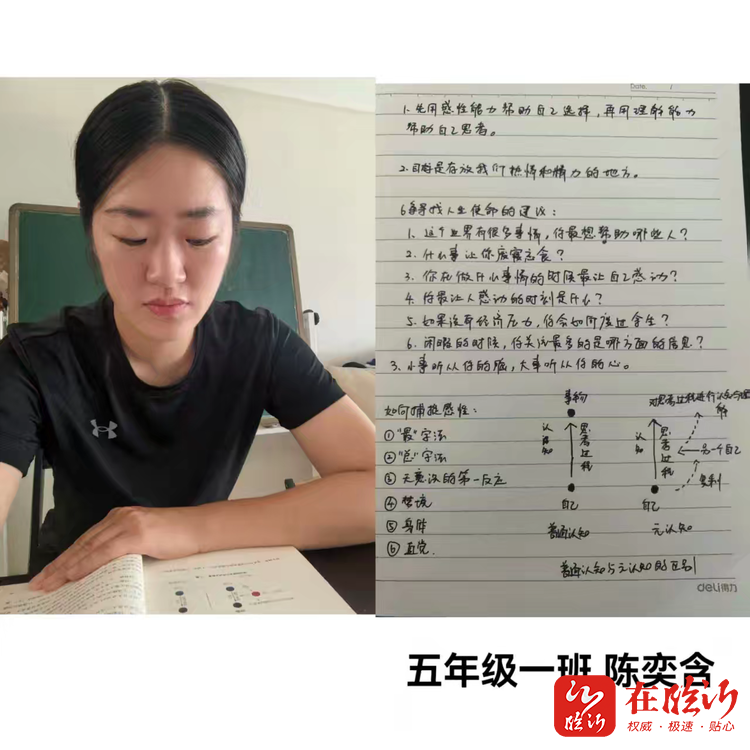 Date.
1. 先用感性能力帮助自己选择，再用理解能力
帮助自己思考。
2. 目标是存放我们热情和精力的地方。
寻找人生使命的建议：
1. 这个世界有很多事情，你最想帮助哪些人？
2. 什么事让你废寝忘食？
3. 你在做什么事情的时候最让自己感动？
4. 你最让人感动的时刻是什么？
5. 如果没有经济压力，你会如何度过余生？
6. 闲暇的时候，你关注最多的是哪方面的信息？
3. 小事听从你的脑，大事听从你的心。
如何捕捉感性：
①“最”字法
②“总”字法
③ 无意识的第一反应
④ 梦境
⑤ 身体
⑥ 直觉
事物
认知
思考过程
自己
普通认知
对思考过程进行认知与理解
认知
思考过程
另一个自己
复制
自己
元认知
普通认知与元认知的区别
deli得力
五年级一班 陈奕含
在临沂
权威·极速·贴心